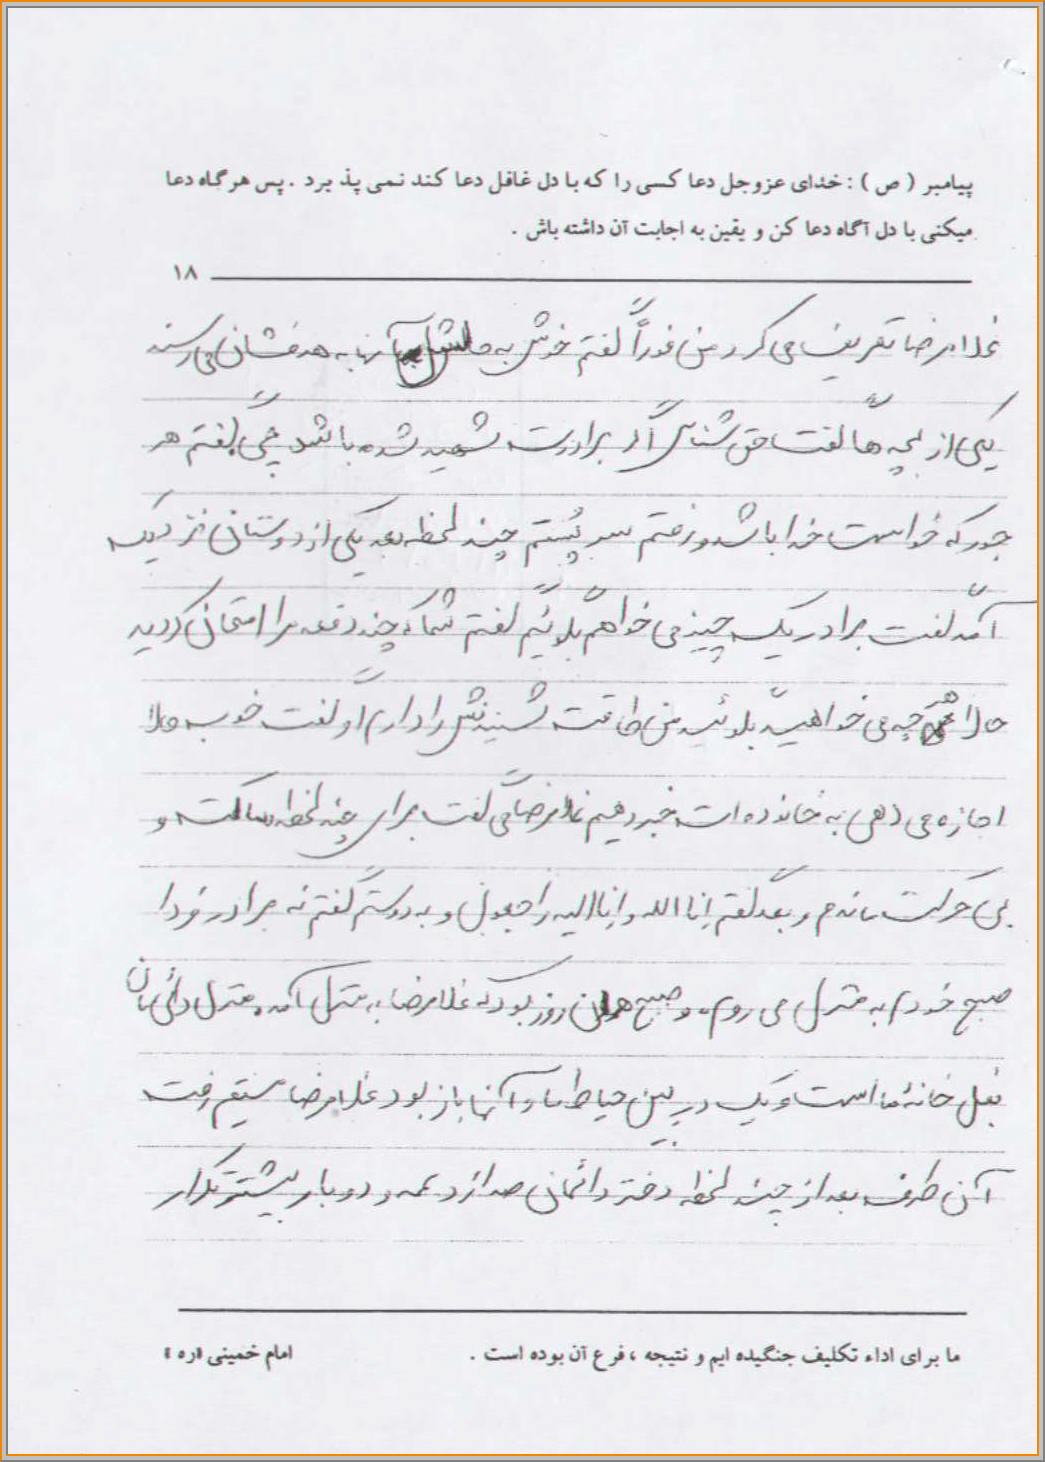 پیامبر ( ص ) : خدای عزوجل دعا کسی را که با دل غافل دعا کند نمی پذ یرد . پس هر گاه دعا
میکنی با دل آگاه دعا کن و یقین به اجابت آن داشته باش .
۱۸
غلامرضا تعریف می کرد من فوراً گفتم خوش به حالش آنها به هدفشان می رسند
یکی از بچه ها گفت حق شناس اگر برادرت شهید شده باشد چی گفتم هر
جور که خواست خدا باشد و رفتم سر پُستم چند لحظه بعد یکی از دوستان نزدیک
آمد گفت برادر یک چیز می خواهم بگوئیم گفتم شما که چند دفعه مرا امتحان کردید
حالا هر چه می خواهید بگوئید من طاقت شنیدنش را دارم او گفت خوب حالا
اجازه می دهی به خانواده ات خبر دهیم غلامرضا می گفت برای چند لحظه ساکت و
بی حرکت ماندم و بعد گفتم اِنا الله و اِنا الیه راجعون و به دوستم گفتم نه برادر فردا
صبح خودم به منزل می روم، و صبح همان روز بود که غلامرضا به منزل آمد، منزل دائی مان
بغل خانهٔ ما است و یک در بین حیاط ما و آنها باز بود غلامرضا مستقیم رفت
آن طرف بعد از چند لحظه دختر دائیمان صدا زد عمه و دوبار بیشتر تکرار
ما برای اداء تکلیف جنگیده ایم و نتیجه ، فرع آن بوده است .
امام خمینی «ره »